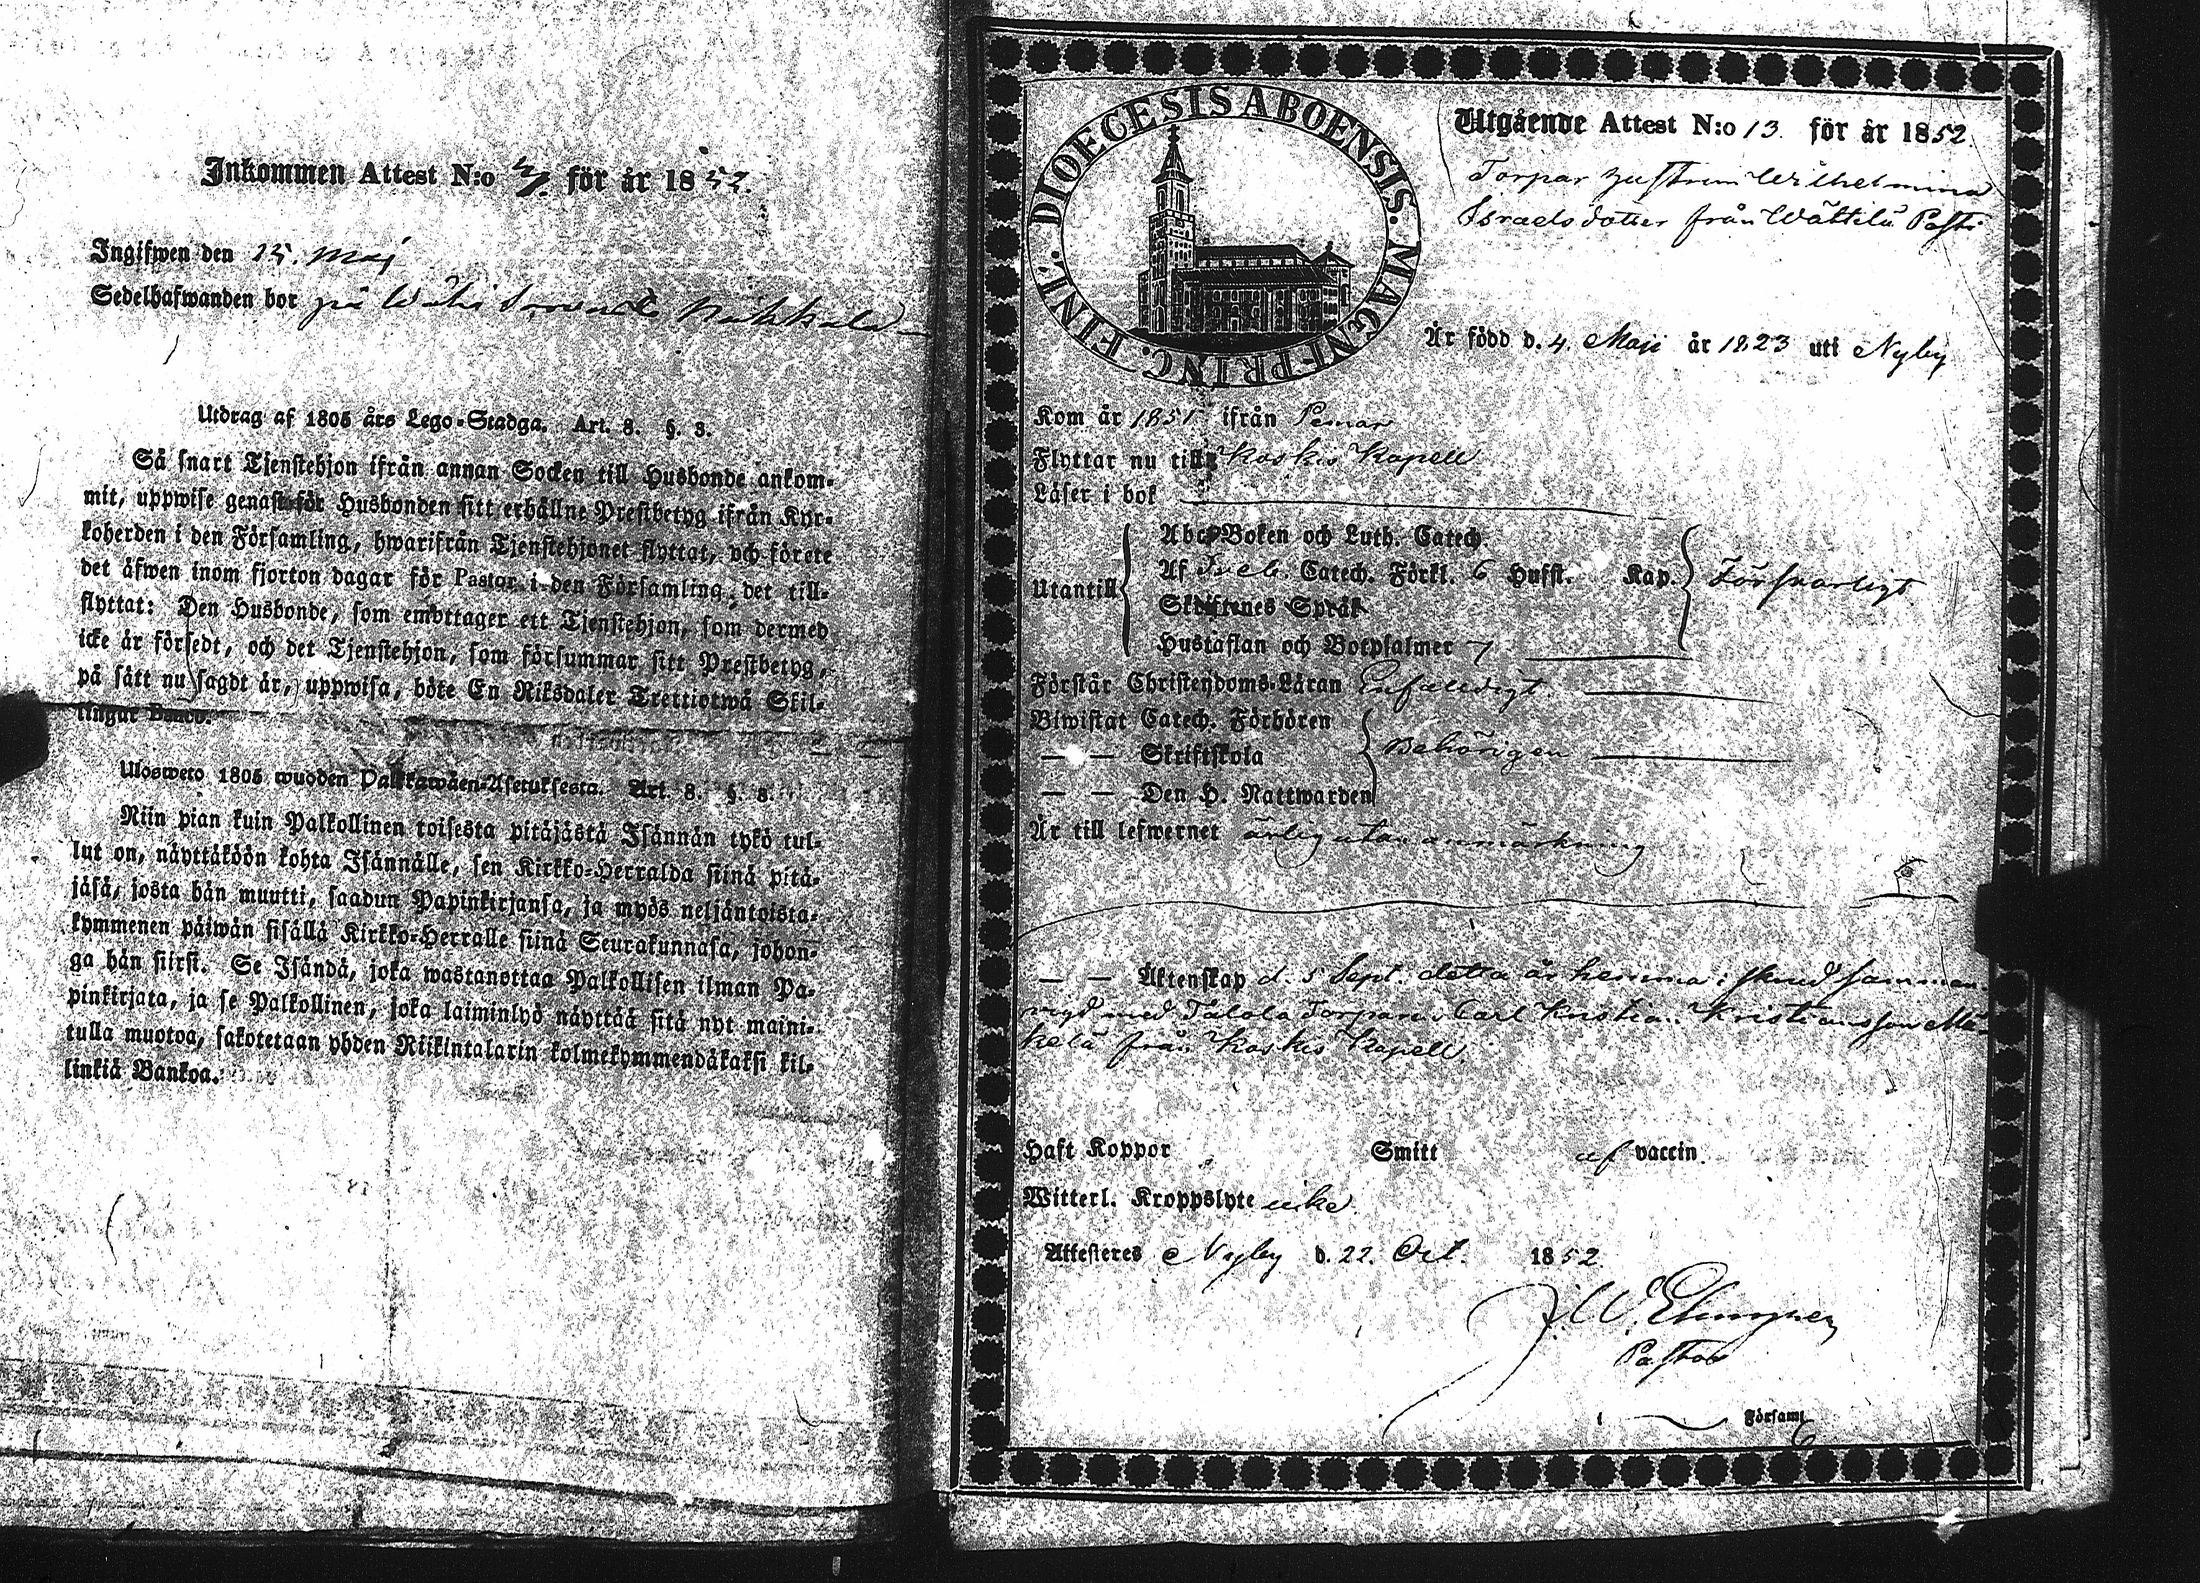 Inkommen Attest N:o för år 1852.
Ingifwen den 15. Maj
Sedelhafwanden bor på
Utdrag af 1805 års Lego-Stadga. Art. 8. §. 8.
Så snart Tjenstehjon ifrån annan Socken till Husbonde ankom-
mit, uppwise genast för Husbonden sitt erhållne Prestbetyg ifrån Kyr-
koherden i den Församling, hwarifrån Tjenstehjonet flyttat, och förete
det äfwen inom fjorton dagar för Pastor i den Församling, det till-
flyttat: Den Husbonde, som emottager ett Tjenstehjon, som dermed
icke är försedt, och det Tjenstehjon, som försummar sitt Prestbetyg,
på sätt nu sagdt är, uppwisa, böte En Riksdaler Trettiotwå Skil-
lingar Banco.
Ulosweto 1805 wuoden Palkkawäen-Asetuksesta. Art. 8. §. 8.
Niin pian kuin Palkollinen toisesta pitäjästä Isännän tykö tul-
lut on, näyttäköön kohta Isännälle, sen Kirkko-Herralda siinä pitä-
jäsä, josta hän muutti, saadun Papinkirjansa, ja myös neljäntoista-
kymmenen päiwän sisällä Kirkko-Herralle siinä Seurakunnasa, johon-
ga hän siirsi. Se Isändä, joka wastanottaa Palkollisen ilman Pa-
pinkirjata, ja se Palkollinen, joka laiminlyö näyttää sitä nyt maini-
tulla muotoa, sakotetaan yhden Riikintalarin kolmekymmendäkaksi kil-
linkiä Bankoa.
DIOECESIS ABOENSIS. MAGNI PRINC. FINL.
Utgående Attest N:o 13. för år 1852.
Torpar Hustrun Wilhelmina
Israels dotter från Wättilä Pasti
Är född d. 4. Maji år 1823 uti Nyby
Kom år 1851 ifrån Pemar
Flyttar nu till Koskis Kapell
Läser i bok
Utantill
Abc-Boken och Luth. Catech.
Af Sveb. Catech. Förkl. 6 Hufst. Kap. Försvarligt
Skriftenes Språk
Hustaflan och Botpsalmer 7
Förstår Christendoms-Läran Enfaldigt
Biwistat Catech. Förhören
— — Skriftskola Behörigen
— — Den H. Nattwarden
Är till lefwernet ärlig utan anmärkning
— — Äktenskap d. 5 Sept. detta år hemma i samman
vigd med Talola Torparen Carl Kristian Kristiansson Mä-
kelä från Koskis Kapell.
Haft Koppor Smitt af vaccin.
Witterl. Kroppslyte icke
Attesteres Nyby d. 22. Oct. 1852.
Pastor
i Församl.